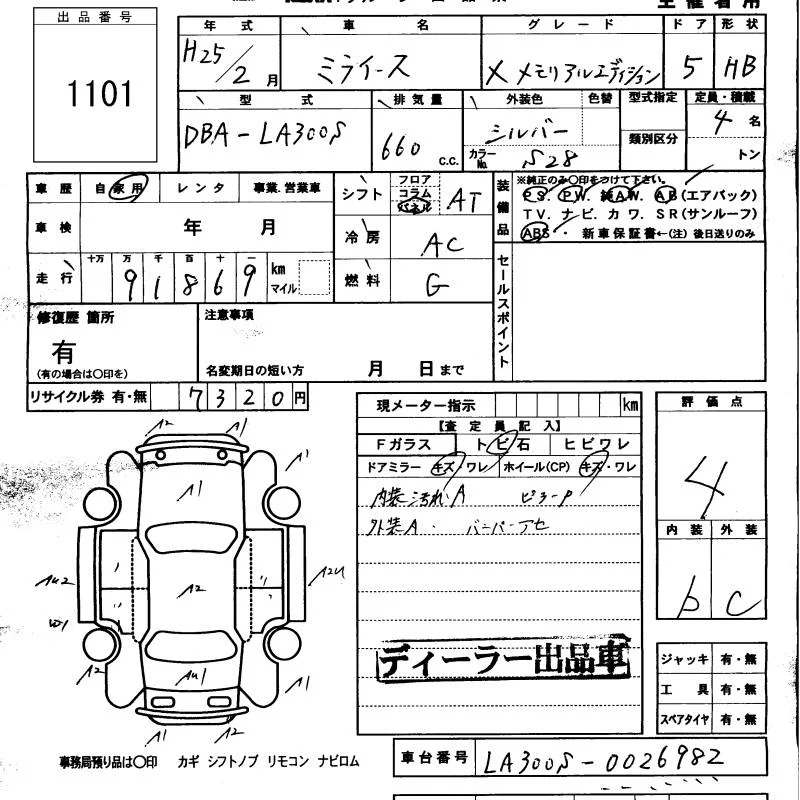 主催者用
出品番号
1101
年式 車名 グレード ドア 形状
H25/2月 ミライース X メモリアルエディション 5 HB
型式 排気量 外装色 色替 型式指定 定員・積載
DBA-LA300S 660 c.c. シルバー 類別区分 4名
カラーNo. S28 トン
車歴 自家用 レンタ 事業.営業車
シフト フロア コラム パネル AT
装備品 ※純正のみ〇印をつけて下さい。
PS. PW. 純AW. AB(エアバック)
TV. ナビ. カワ. SR(サンルーフ)
ABS・ 新車保証書←(注) 後日送りのみ
車検 年 月
冷房 AC
走行 十万 万 千 百 十 一
91869 km マイル
燃料 G
セールスポイント
修復歴 箇所
有
(有の場合は〇印を)
注意事項
名変期日の短い方 月 日まで
リサイクル券 有・無 7320円
現メーター指示 km
【査定員記入】
Fガラス トビ石 ヒビワレ
ドアミラー キズ・ワレ ホイール(CP) キズ・ワレ
内装汚れA ピラーP
外装A. バンパーアセ
ディーラー出品車
評価点
4
内装 外装
b C
A2 A1
A1
A1
A2
AU2 A2U
W1
AU1
A2 A1
A1 A2
ジャッキ 有・無
工具 有・無
スペアタイヤ 有・無
事務局預り品は〇印 カギ シフトノブ リモコン ナビロム
車台番号 LA300S-0026982